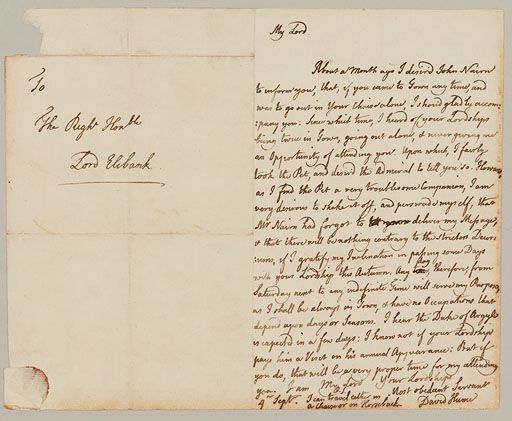 To
The Right Honble
Lord Elibank
My Lord
About a Month ago I desir'd John Nairn
to inform you, that, if you came to Town any time, and
was to go out in your Chaise alone, I shoud gladly accom:
:pany you. Since which time, I heard of your Lordships
being twice in Town, going out alone, & never giving me
an Opportunity of attending you. Upon which, I fairly
took the Pet, and desird the Admiral to tell you so. However
as I find the Pet a very troublesome Companion, I am
very desirous to shake it off, and perswade myself, that
Mr Nairn had forgot to deliver my Message,
& that there will be nothing contrary to the strictest Decor:
:ums, if I gratify my Inclination in passing some Days
with your Lordship this Autumn. Any day, therefore, from
Saturday next to any indefinite time will serve my Purpose,
as I shall be always in Town, & have no Occupations that
depend upon days or Seasons. I hear the Duke of Argyle
is expected in a few days: I know not if your Lordship
pays him a Visit on his annual Appearance: But if
you do, that will be a very proper time for my attending
you. I am My Lord Your Lordships
Most obedient Servant
4th Septr. I can travel either in
a Chaise or on Horseback
David Hume